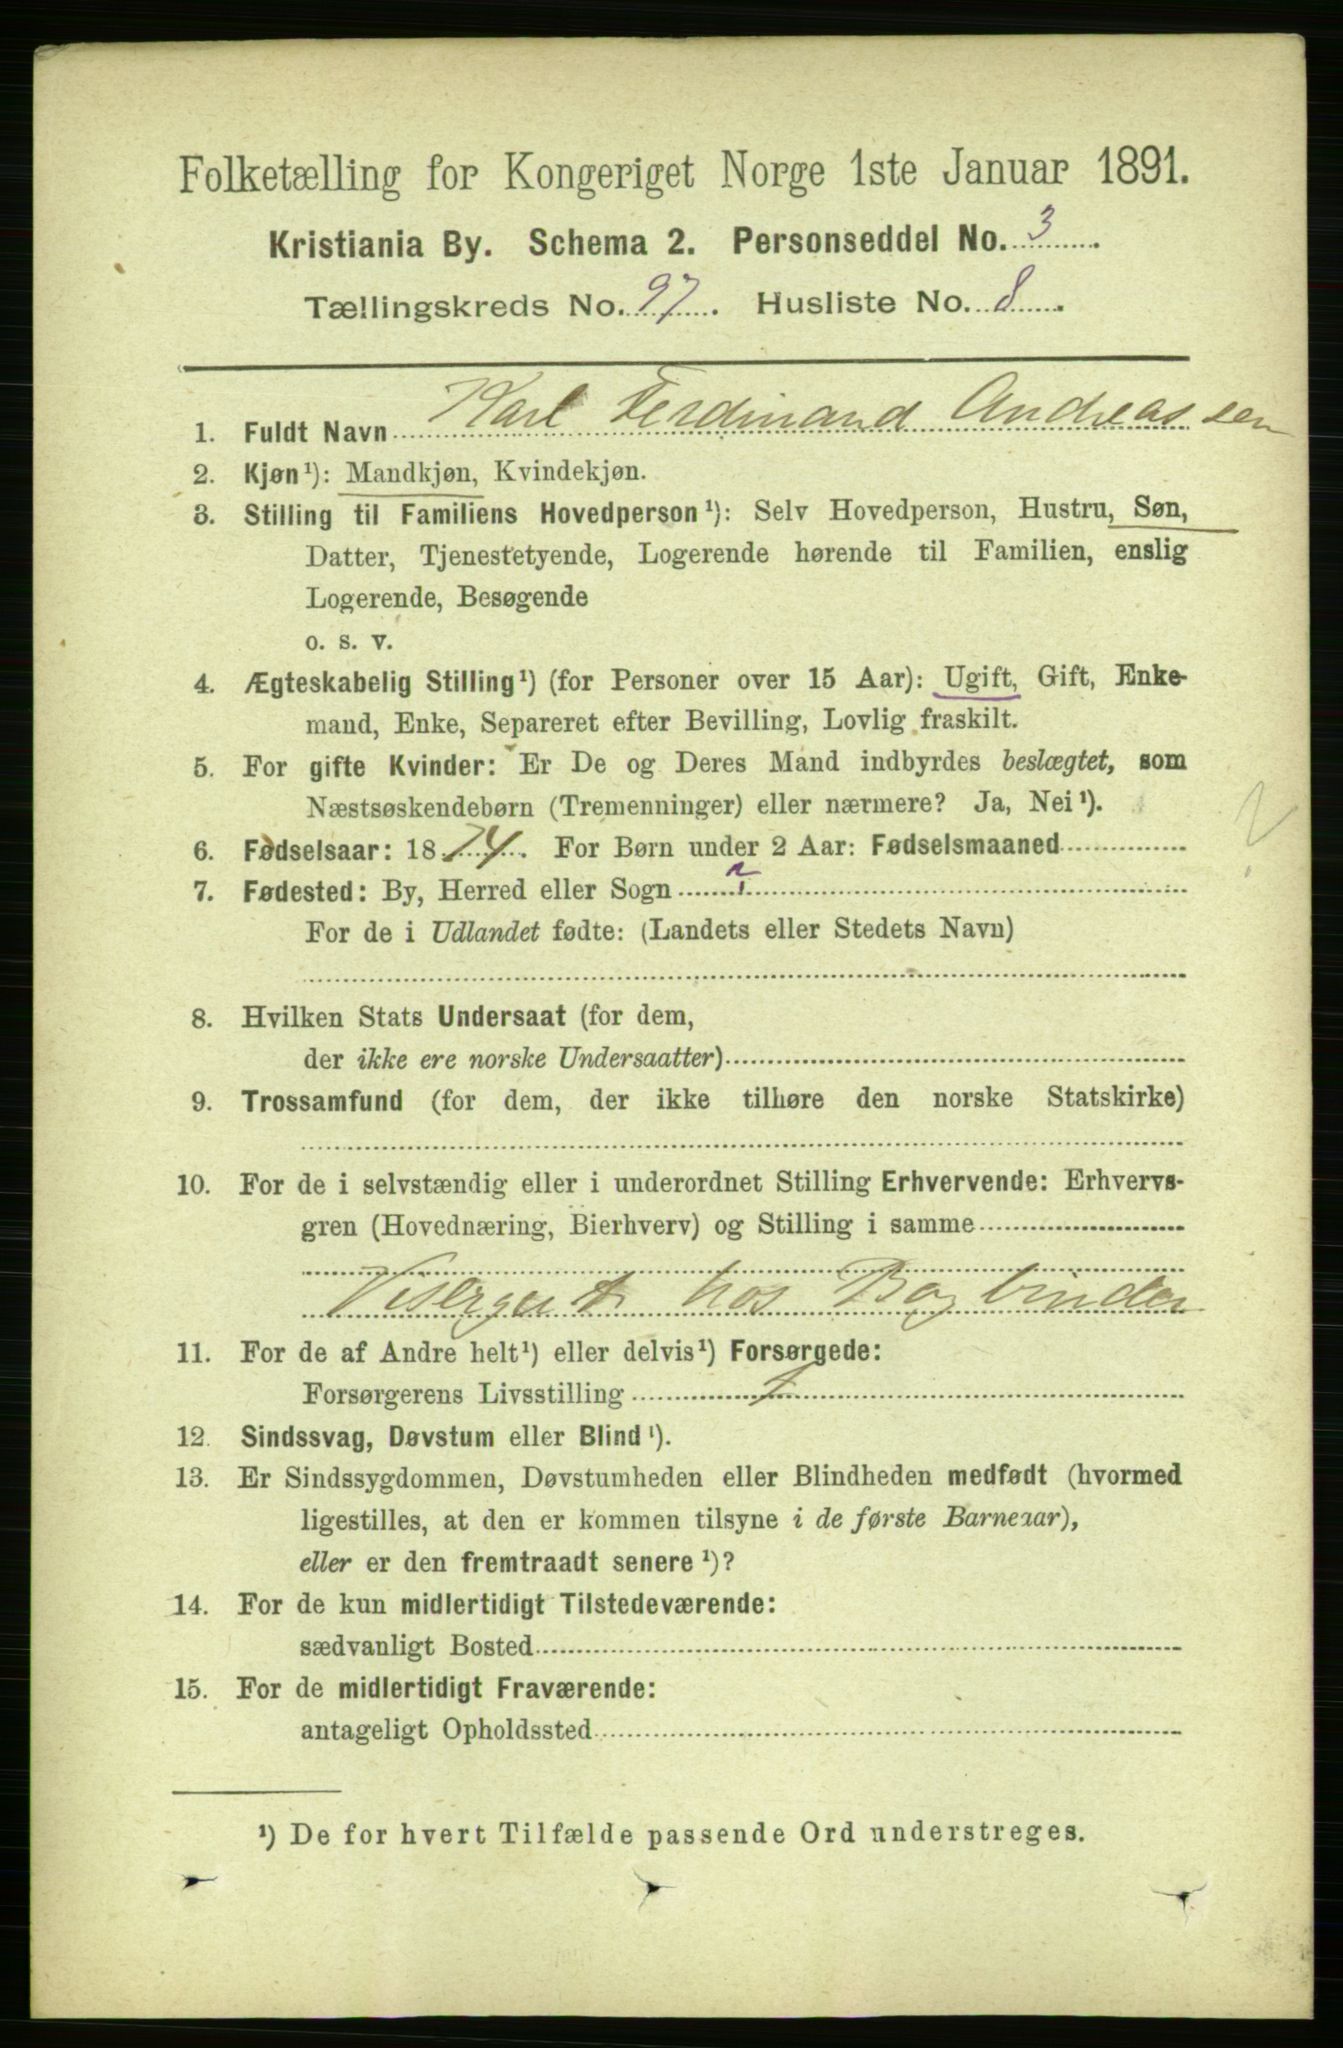 Folketælling for Kongeriget Norge 1ste Januar 1891.
Kristiania By. Schema 2. Personseddel No. 3.
Tællingskreds No. 97. Husliste No. 8.
1. Fuldt Navn Karl Ferdinand Andreassen
2. Kjøn¹): Mandkjøn, Kvindekjøn.
3. Stilling til Familiens Hovedperson¹): Selv Hovedperson, Hustru, Søn,
Datter, Tjenestetyende, Logerende hørende til Familien, enslig
Logerende, Besøgende
o. s. v.
4. Ægteskabelig Stilling¹) (for Personer over 15 Aar): Ugift, Gift, Enke-
mand, Enke, Separeret efter Bevilling, Lovlig fraskilt.
5. For gifte Kvinder: Er De og Deres Mand indbyrdes beslægtet, som
Næstsøskendebørn (Tremenninger) eller nærmere? Ja, Nei¹).
?
6. Fødselsaar: 1874. For Børn under 2 Aar: Fødselsmaaned
7. Fødested: By, Herred eller Sogn ?
For de i Udlandet fødte: (Landets eller Stedets Navn)
8. Hvilken Stats Undersaat (for dem,
der ikke ere norske Undersaatter)
9. Trossamfund (for dem, der ikke tilhøre den norske Statskirke)
10. For de i selvstændig eller i underordnet Stilling Erhvervende: Erhvervs-
gren (Hovednæring, Bierhverv) og Stilling i samme
Visergut hos Bogbinder
11. For de af Andre helt¹) eller delvis¹) Forsørgede:
Forsørgerens Livsstilling
12. Sindssvag, Døvstum eller Blind¹).
13. Er Sindssygdommen, Døvstumheden eller Blindheden medfødt (hvormed
ligestilles, at den er kommen tilsyne i de første Barneaar),
eller er den fremtraadt senere¹)?
14. For de kun midlertidigt Tilstedeværende:
sædvanligt Bosted
15. For de midlertidigt Fraværende:
antageligt Opholdssted
¹) De for hvert Tilfælde passende Ord understreges.